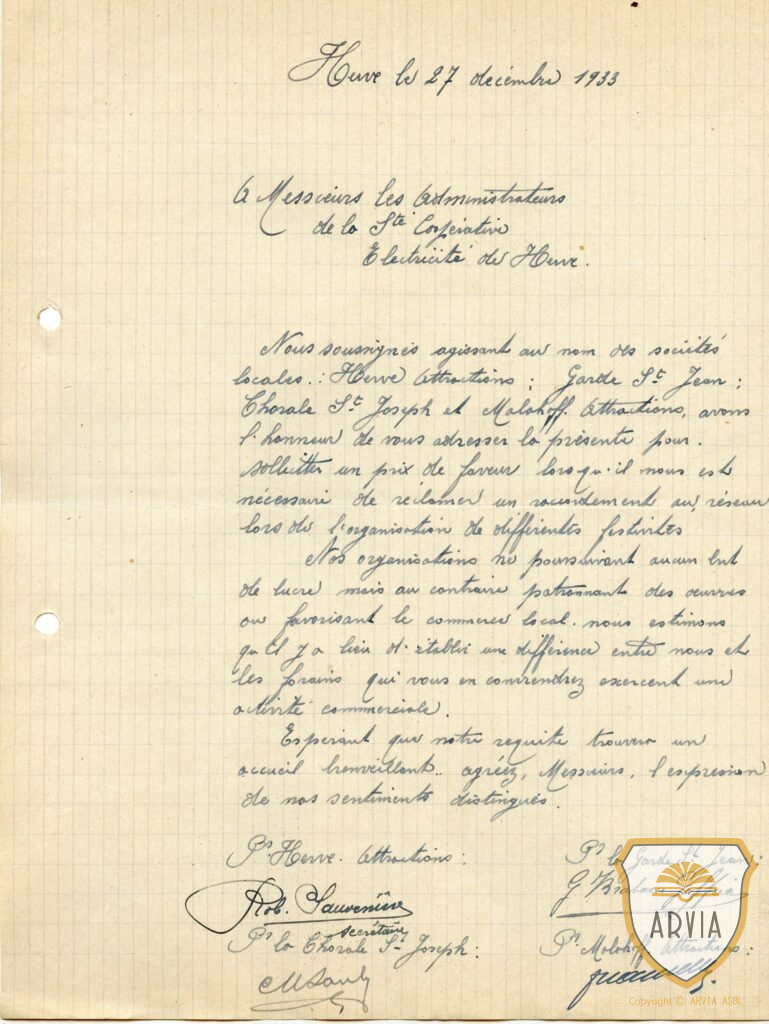 Herve le 27 décembre 1933
A Messieurs les Administrateurs
de la Sté Coopérative
Electricité de Herve.
Nous soussignés agissant au nom des sociétés
locales : Herve Attractions ; Garde St Jean ;
Chorale St Joseph et Malakoff Attractions, avons
l'honneur de vous adresser la présente pour
solliciter un prix de faveur lorsqu'il nous est
nécessaire de réclamer un racordement au réseau
lors de l'organisation de différentes festivités
Nos organisations ne poursuivant aucun but
de lucre mais au contraire patronnant des œuvres
ou favorisant le commerce local. nous estimons
qu'il y a lieu d'établir une différence entre nous et
les forains qui vous en conviendrez exercent une
activité commerciale.
Espérant que notre requête trouvera un
accueil bienveillant.. agréez, Messieurs, l'expression
de nos sentiments distingués.
Pr Herve Attractions :
Pr la Garde St Jean :
Rob. Sauvenière
secrétaire
Pr la Chorale St Joseph :
Pr Malakoff Attractions :
ARVIA
Copyright © ARVIA ASBL